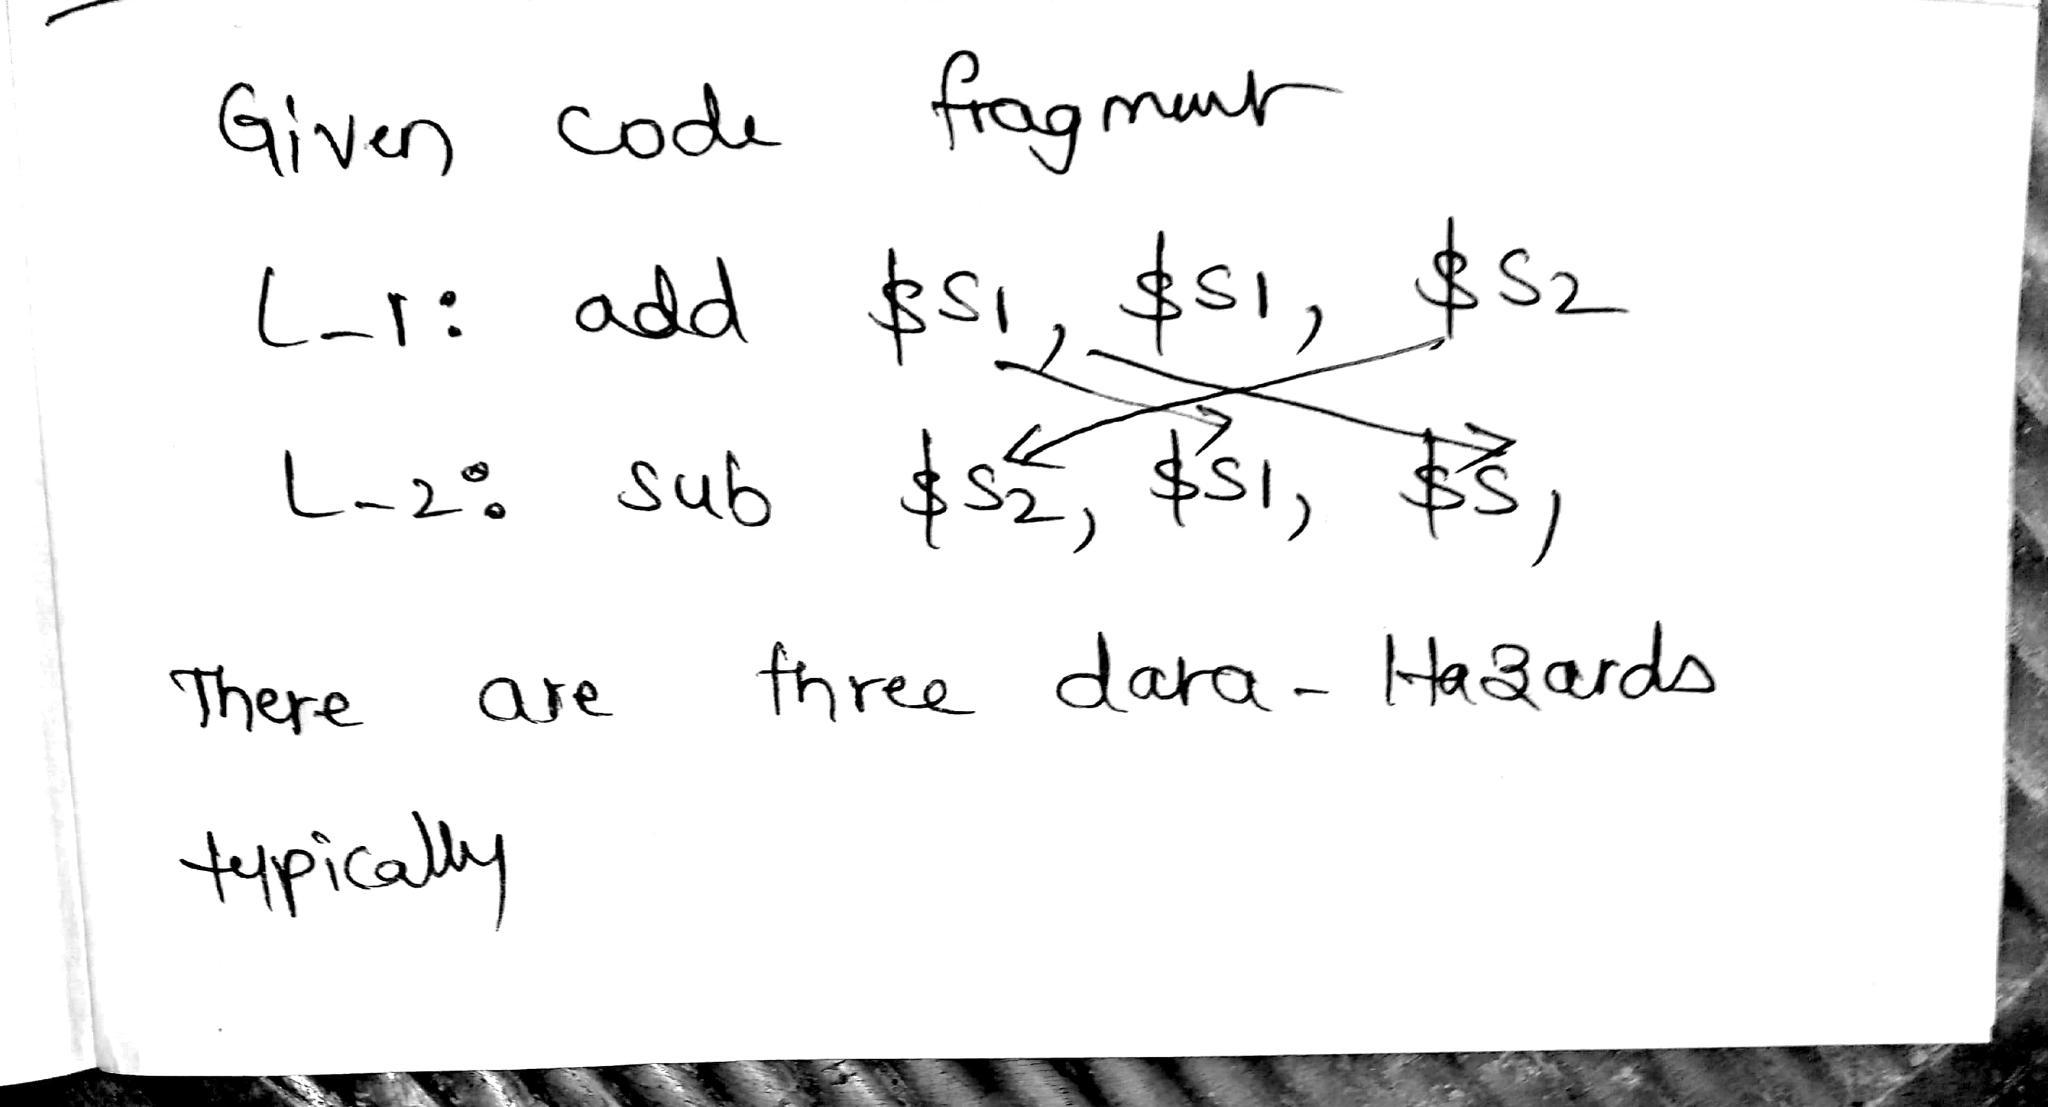 Given code fragment
L_1: add $S1, $S1, $S2
L_2: sub $S2, $S1, $S,
There are three data-Hazards
typically